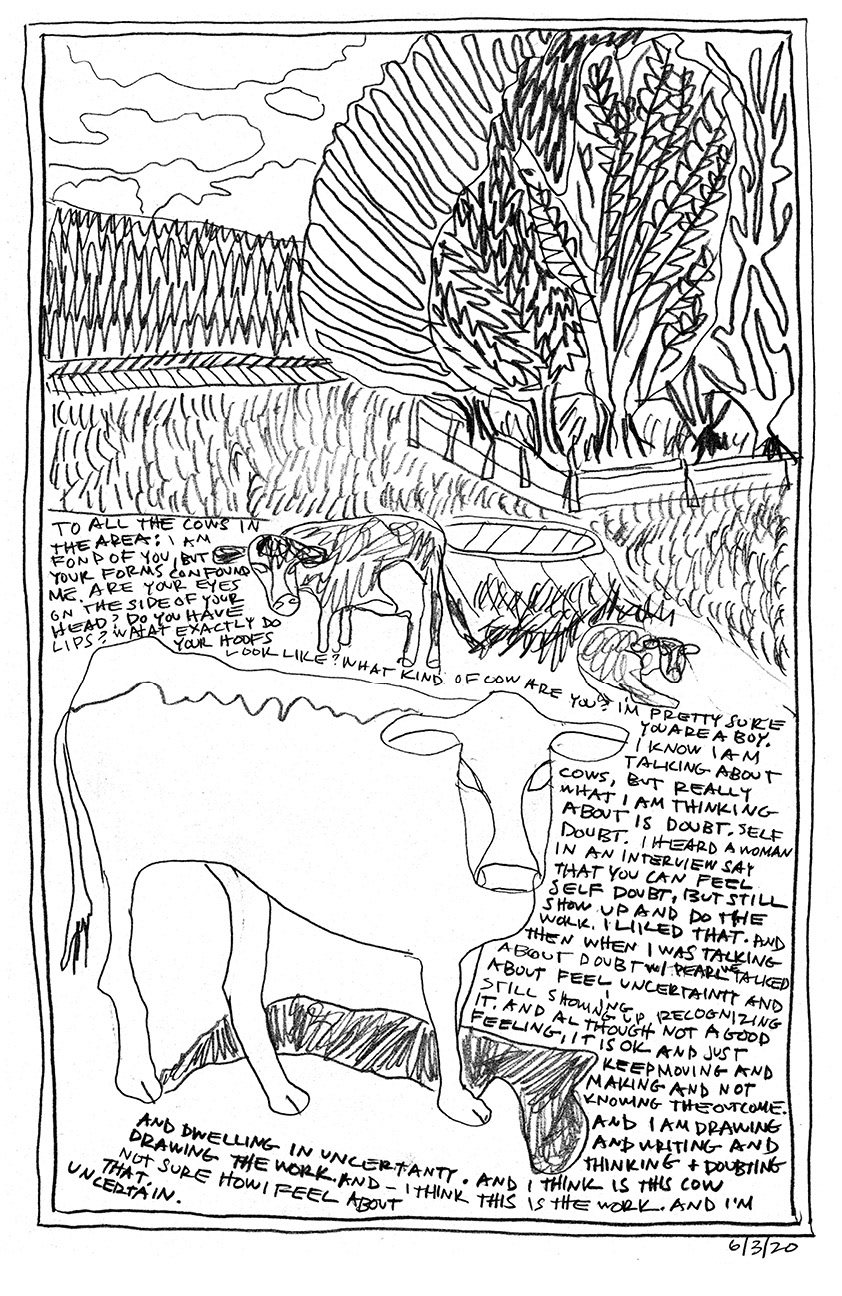 TO ALL THE COWS IN
THE AREA: I AM
FOND OF YOU, BUT
YOUR FORMS CONFOUND
ME. ARE YOUR EYES
ON THE SIDE OF YOUR
HEAD? DO YOU HAVE
LIPS? WHAT EXACTLY DO
YOUR HOOFS
LOOK LIKE? WHAT KIND OF COW ARE YOU? I'M PRETTY SURE
YOU ARE A BOY.
I KNOW I AM
TALKING ABOUT
COWS, BUT REALLY
WHAT I AM THINKING
ABOUT IS DOUBT. SELF
DOUBT. I HEARD A WOMAN
IN AN INTERVIEW SAY
THAT YOU CAN FEEL
SELF DOUBT, BUT STILL
SHOW UP AND DO THE
WORK. I LIKED THAT. AND
THEN WHEN I WAS TALKING
ABOUT DOUBT W/ PEARL WE TALKED
ABOUT FEEL UNCERTAINTY AND
STILL SHOWING UP, RECOGNIZING
IT. AND ALTHOUGH NOT A GOOD
FEELING, IT IS OK AND JUST
KEEP MOVING AND
MAKING AND NOT
KNOWING THE OUTCOME.
AND I AM DRAWING
AND WRITING AND
THINKING + DOUBTING
AND DWELLING IN UNCERTANTY. AND I THINK IS THIS COW
DRAWING THE WORK. AND – I THINK THIS IS THE WORK. AND I'M
NOT SURE HOW I FEEL ABOUT
THAT.
UNCERTAIN.
6/3/20